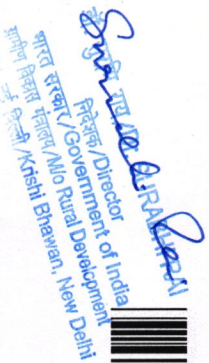 राय
निदेशक/Director
भारत सरकार/Government of India
ग्रामीण विकास मंत्रालय/M/o Rural Development
/Krishi Bhawan, New Delhi